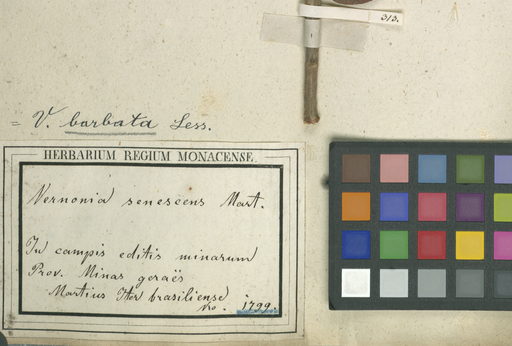 313.
= V. barbata Less.
HERBARIUM REGIUM MONACENSE.
Vernonia senescens Mart.
In campis editis minarum
Prov. Minas geraës
Martius Iter brasiliense
No. 1799.